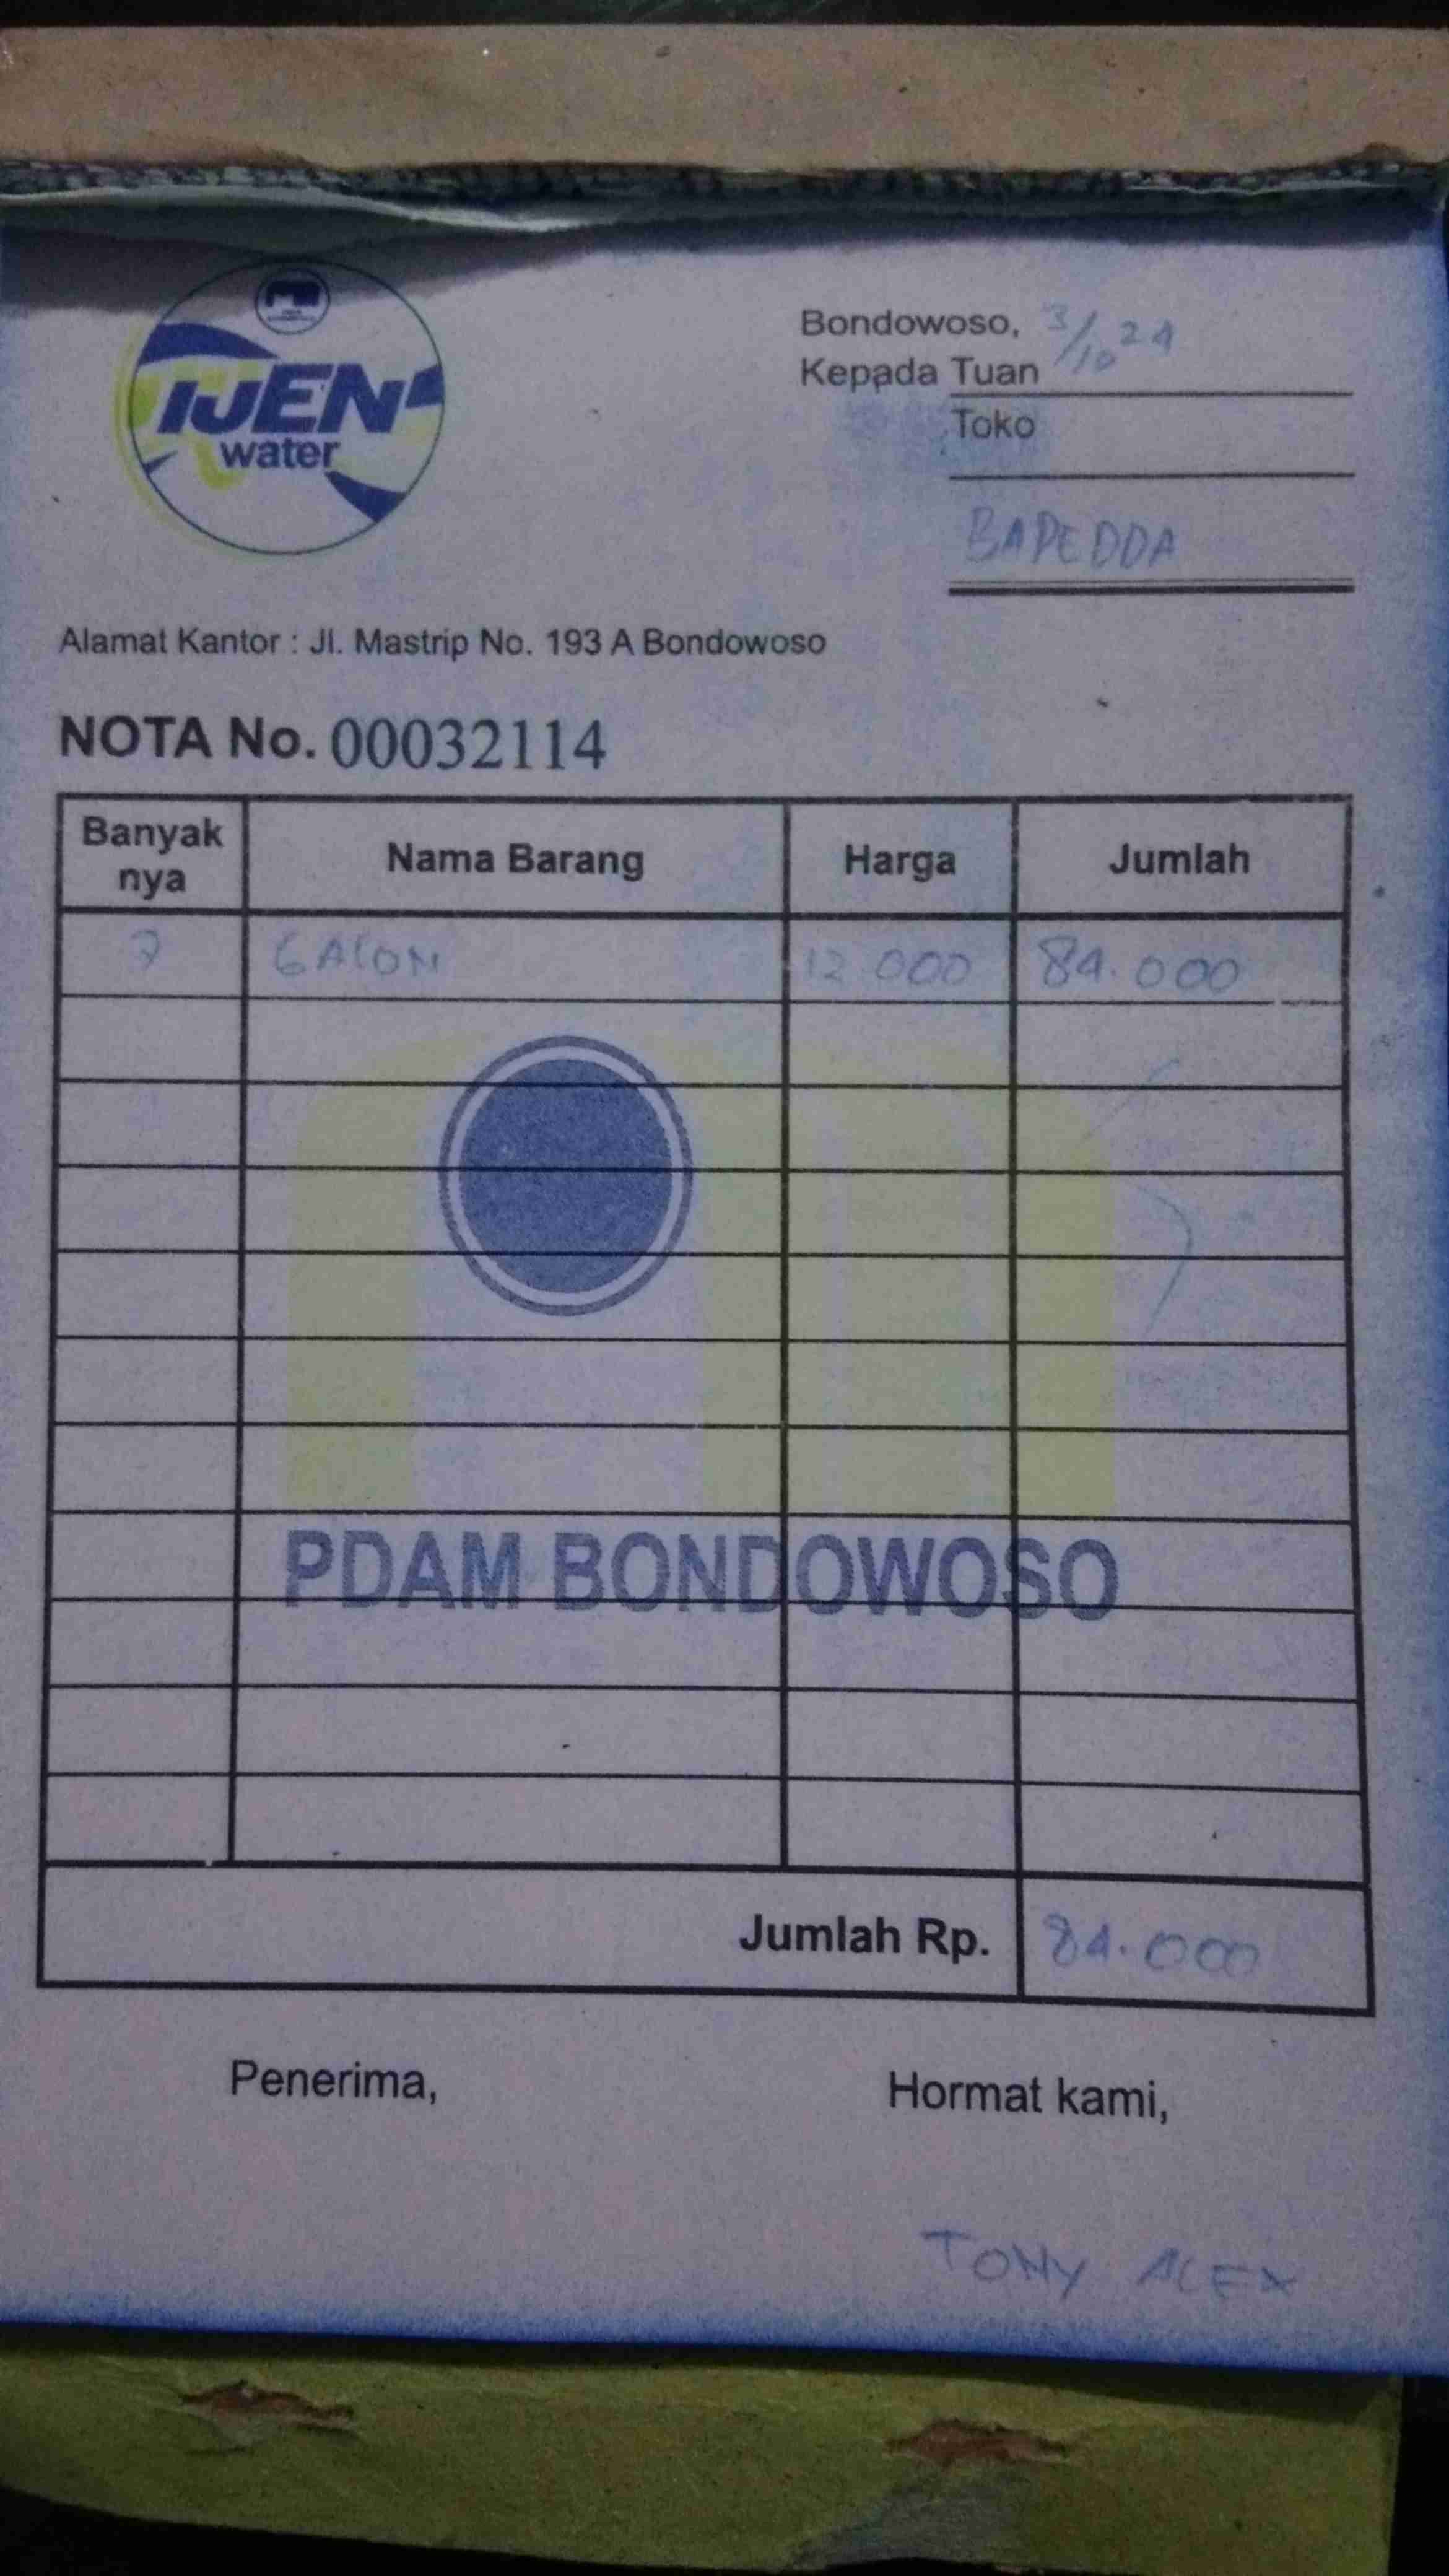 IJEN
water
Bondowoso, 3/10 24
Kepada Tuan
Toko
BAPEDDA
Alamat Kantor : Jl. Mastrip No. 193 A Bondowoso
NOTA No. 00032114
Banyak nya Nama Barang Harga Jumlah
7 GALON 12 000 84.000
PDAM BONDOWOSO
Jumlah Rp. 84.000
Penerima, Hormat kami,
TONY ALEX